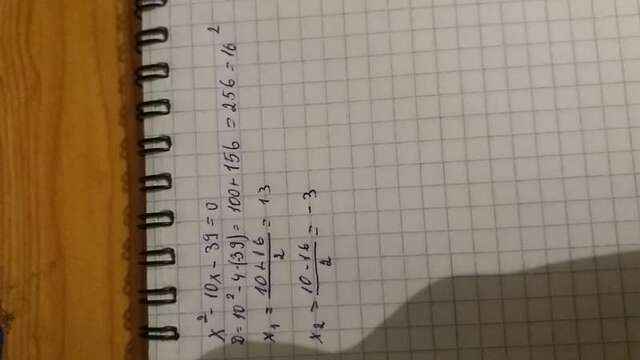 x² - 10x - 39 = 0
D = 10² - 4·(-39) = 100 + 156 = 256 = 16²
x₁ = (10 + 16)/2 = 13
x₂ = (10 - 16)/2 = -3